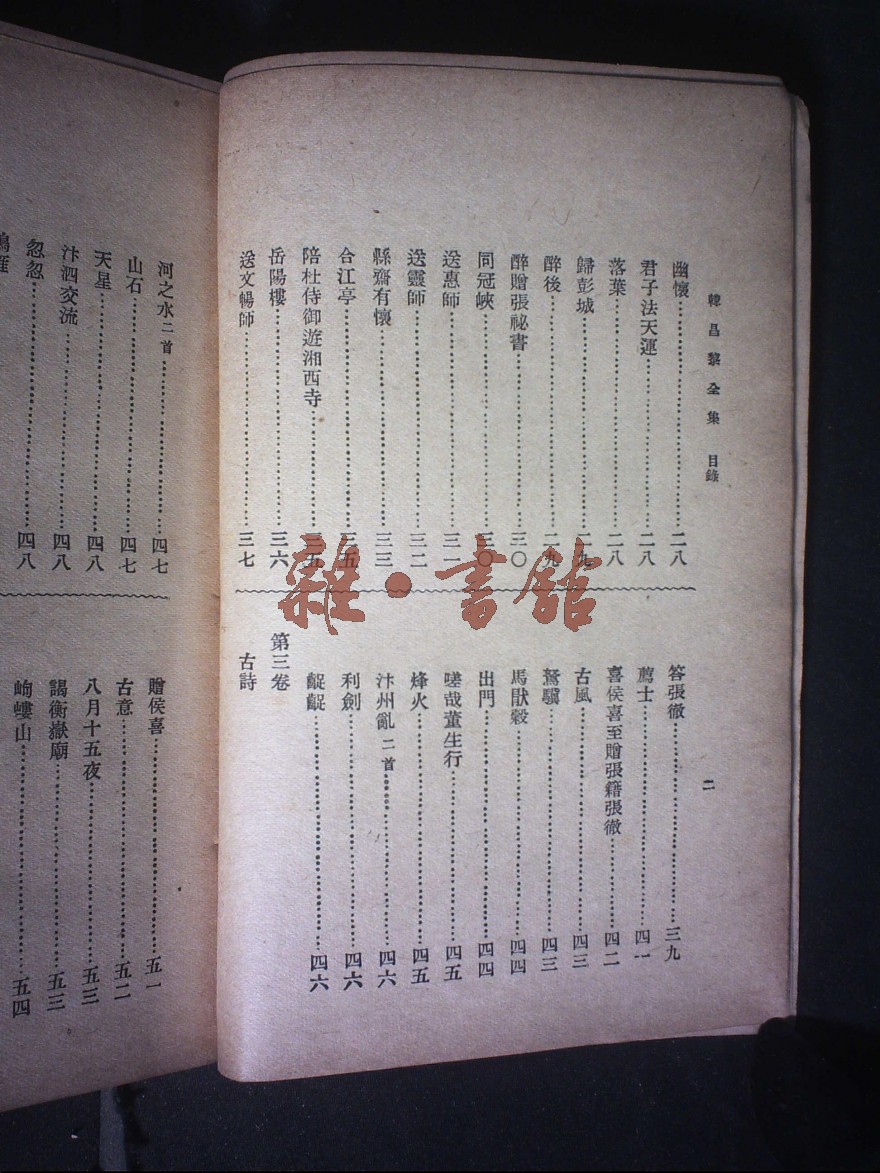 韓昌黎全集 目錄
二
幽懷……二八
君子法天運……二八
落葉……二八
歸彭城……二九
醉後……二九
醉贈張祕書……三〇
同冠峽……三〇
送惠師……三一
送靈師……三二
縣齋有懷……三三
合江亭……三五
陪杜侍御遊湘西寺……三五
岳陽樓……三六
送文暢師……三七
答張徹……三九
薦士……四一
喜侯喜至贈張籍張徹……四二
古風……四三
駑驥……四三
馬厭穀……四四
出門……四四
嗟哉董生行……四五
烽火……四五
汴州亂二首……四六
利劍……四六
齪齪……四六
第三卷
古詩
河之水二首……四七
山石……四七
天星……四八
汴泗交流……四八
忽忽……四八
鳴雁
贈侯喜……五一
古意……五二
八月十五夜……五三
謁衡嶽廟……五三
岣嶁山……五四
雜·書館